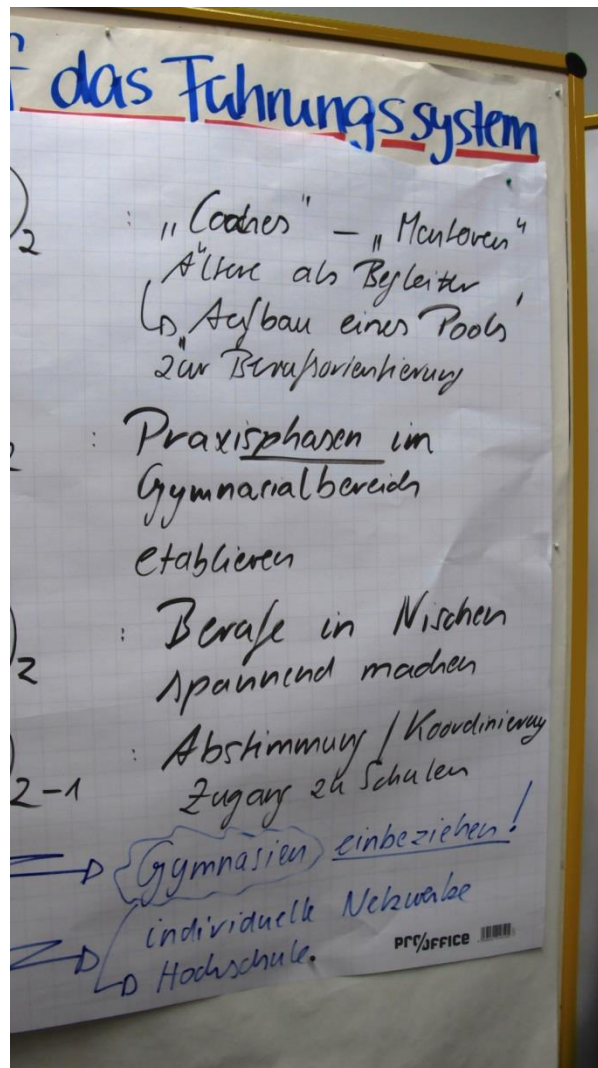 f das Führungssystem
2 : „Coaches" – „Mentoren"
Ältere als Begleiter
↳ Aufbau eines Pools
zur Berufsorientierung
: Praxisphasen im
Gymnasialbereich
etablieren
2 : Berufe in Nischen
spannend machen
2-1 : Abstimmung / Koordinierung
Zugang zu Schulen
⇒ Gymnasien einbeziehen!
⇒ individuelle Netzwerke
↳ Hochschule.
PRO/OFFICE